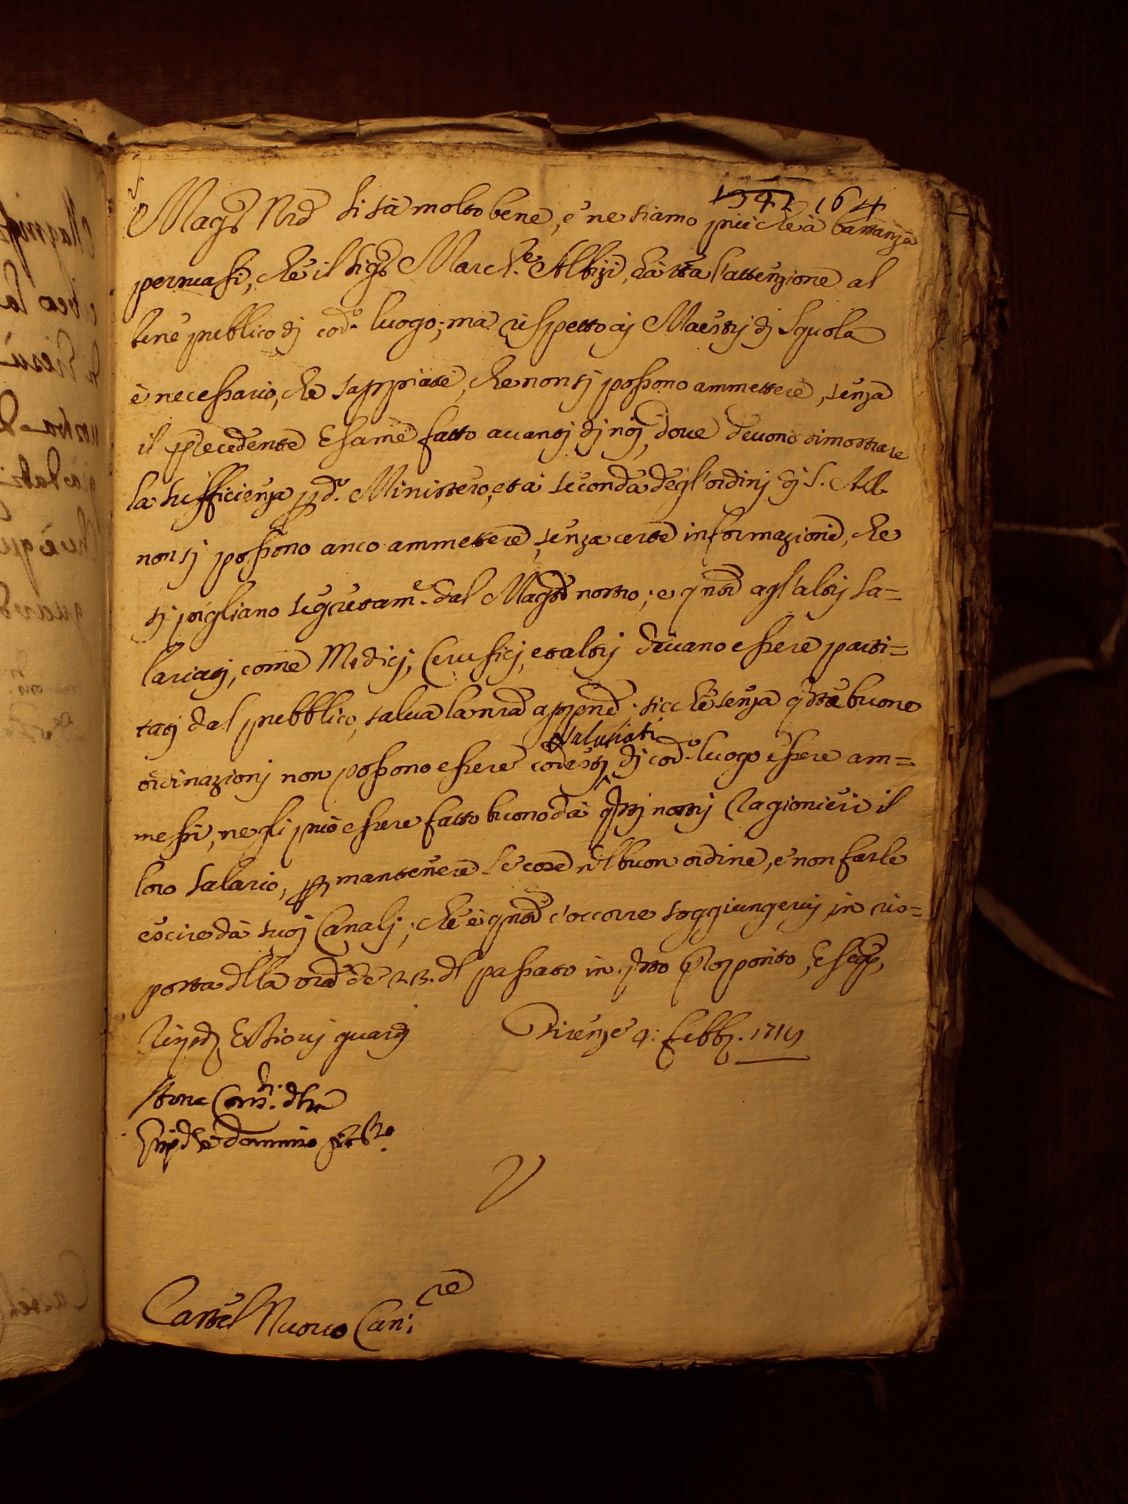 1541 164
Mag.co Nro Si sà molto bene, e ne siamo più che à bastanza
persuasi, che il Sig.r March.e Albizi, hà tta l'attenzione al
bene pubblico di cod.o luogo; ma rispetto aj Maestrj dj Squola
è necessario, che sappiate, che non sj possono ammettere, senza
il precedente Esame fatto avantj dj noj, dove devono dimostrare
la sufficienza p d.o Ministero, et à seconda degl'ordinj dj S. A. R.
non sj possono anco ammettere, senza certe informazioni, che
sj pigliano segretam.e dal Mag.to nostro; e q.nto agl'altrj sa-
lariatj, come Medicj, Cerusicj, et altrj devano essere parti=
tatj dal pubblico, salva la nra app.ne; sicche senza q.ste buone
salariati
ordinazionj non possono essere codestj dj cod.o luogo essere am=
messi, ne gli può essere fatto buono dà q.stj nostrj Ragionieri il
loro salario, p mantenere le cose nel buon ordine, e non farle
escire dà suoj Canalj; che è q.nto c'occorre soggiungervj in ris=
posta della vra de 23. del passato in q.sto proposito, E
guardi Firenze 4: Febb. 1714
Castel Nuovo Can:re